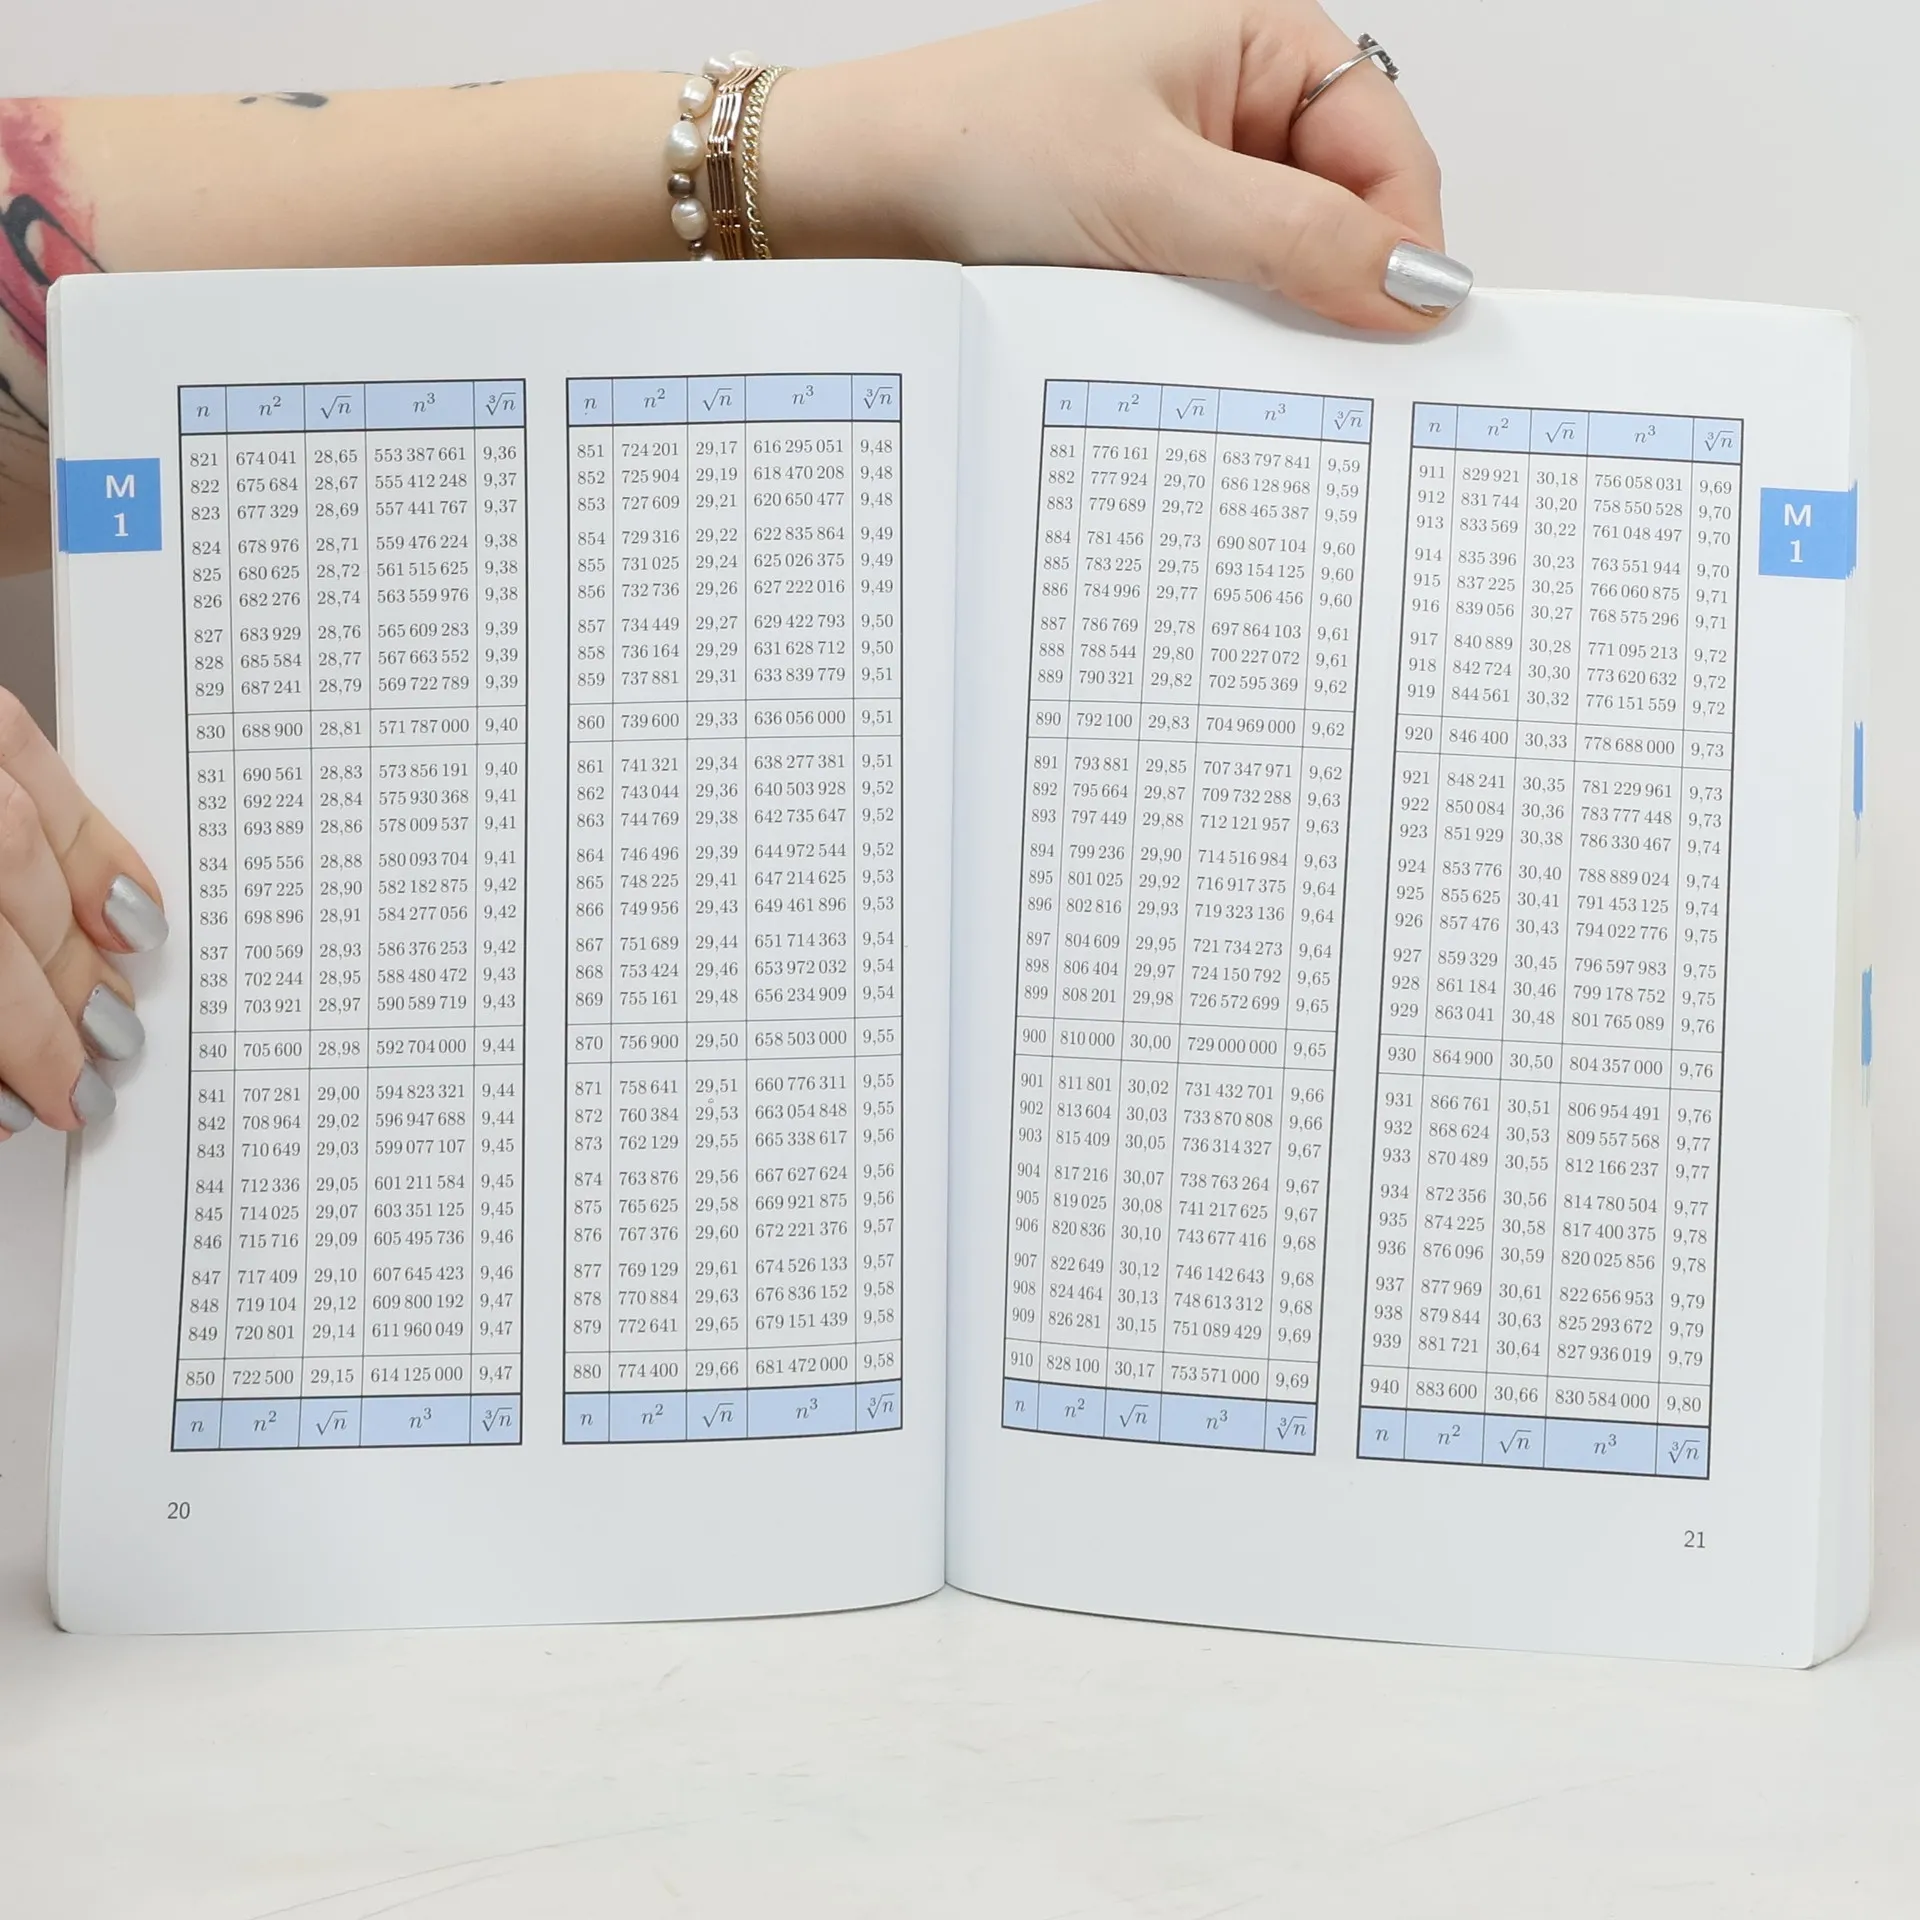 n n² √n n³ ∛n
821 674 041 28,65 553 387 661 9,36
822 675 684 28,67 555 412 248 9,37
823 677 329 28,69 557 441 767 9,37
824 678 976 28,71 559 476 224 9,38
825 680 625 28,72 561 515 625 9,38
826 682 276 28,74 563 559 976 9,38
827 683 929 28,76 565 609 283 9,39
828 685 584 28,77 567 663 552 9,39
829 687 241 28,79 569 722 789 9,39
830 688 900 28,81 571 787 000 9,40
831 690 561 28,83 573 856 191 9,40
832 692 224 28,84 575 930 368 9,41
833 693 889 28,86 578 009 537 9,41
834 695 556 28,88 580 093 704 9,41
835 697 225 28,90 582 182 875 9,42
836 698 896 28,91 584 277 056 9,42
837 700 569 28,93 586 376 253 9,42
838 702 244 28,95 588 480 472 9,43
839 703 921 28,97 590 589 719 9,43
840 705 600 28,98 592 704 000 9,44
841 707 281 29,00 594 823 321 9,44
842 708 964 29,02 596 947 688 9,44
843 710 649 29,03 599 077 107 9,45
844 712 336 29,05 601 211 584 9,45
845 714 025 29,07 603 351 125 9,45
846 715 716 29,09 605 495 736 9,46
847 717 409 29,10 607 645 423 9,46
848 719 104 29,12 609 800 192 9,47
849 720 801 29,14 611 960 049 9,47
850 722 500 29,15 614 125 000 9,47
n n² √n n³ ∛n
n n² √n n³ ∛n
851 724 201 29,17 616 295 051 9,48
852 725 904 29,19 618 470 208 9,48
853 727 609 29,21 620 650 477 9,48
854 729 316 29,22 622 835 864 9,49
855 731 025 29,24 625 026 375 9,49
856 732 736 29,26 627 222 016 9,49
857 734 449 29,27 629 422 793 9,50
858 736 164 29,29 631 628 712 9,50
859 737 881 29,31 633 839 779 9,51
860 739 600 29,33 636 056 000 9,51
861 741 321 29,34 638 277 381 9,51
862 743 044 29,36 640 503 928 9,52
863 744 769 29,38 642 735 647 9,52
864 746 496 29,39 644 972 544 9,52
865 748 225 29,41 647 214 625 9,53
866 749 956 29,43 649 461 896 9,53
867 751 689 29,44 651 714 363 9,54
868 753 424 29,46 653 972 032 9,54
869 755 161 29,48 656 234 909 9,54
870 756 900 29,50 658 503 000 9,55
871 758 641 29,51 660 776 311 9,55
872 760 384 29,53 663 054 848 9,55
873 762 129 29,55 665 338 617 9,56
874 763 876 29,56 667 627 624 9,56
875 765 625 29,58 669 921 875 9,56
876 767 376 29,60 672 221 376 9,57
877 769 129 29,61 674 526 133 9,57
878 770 884 29,63 676 836 152 9,58
879 772 641 29,65 679 151 439 9,58
880 774 400 29,66 681 472 000 9,58
n n² √n n³ ∛n
M
1
20
n n² √n n³ ∛n
881 776 161 29,68 683 797 841 9,59
882 777 924 29,70 686 128 968 9,59
883 779 689 29,72 688 465 387 9,59
884 781 456 29,73 690 807 104 9,60
885 783 225 29,75 693 154 125 9,60
886 784 996 29,77 695 506 456 9,60
887 786 769 29,78 697 864 103 9,61
888 788 544 29,80 700 227 072 9,61
889 790 321 29,82 702 595 369 9,62
890 792 100 29,83 704 969 000 9,62
891 793 881 29,85 707 347 971 9,62
892 795 664 29,87 709 732 288 9,63
893 797 449 29,88 712 121 957 9,63
894 799 236 29,90 714 516 984 9,63
895 801 025 29,92 716 917 375 9,64
896 802 816 29,93 719 323 136 9,64
897 804 609 29,95 721 734 273 9,64
898 806 404 29,97 724 150 792 9,65
899 808 201 29,98 726 572 699 9,65
900 810 000 30,00 729 000 000 9,65
901 811 801 30,02 731 432 701 9,66
902 813 604 30,03 733 870 808 9,66
903 815 409 30,05 736 314 327 9,67
904 817 216 30,07 738 763 264 9,67
905 819 025 30,08 741 217 625 9,67
906 820 836 30,10 743 677 416 9,68
907 822 649 30,12 746 142 643 9,68
908 824 464 30,13 748 613 312 9,68
909 826 281 30,15 751 089 429 9,69
910 828 100 30,17 753 571 000 9,69
n n² √n n³ ∛n
n n² √n n³ ∛n
911 829 921 30,18 756 058 031 9,69
912 831 744 30,20 758 550 528 9,70
913 833 569 30,22 761 048 497 9,70
914 835 396 30,23 763 551 944 9,70
915 837 225 30,25 766 060 875 9,71
916 839 056 30,27 768 575 296 9,71
917 840 889 30,28 771 095 213 9,72
918 842 724 30,30 773 620 632 9,72
919 844 561 30,32 776 151 559 9,72
920 846 400 30,33 778 688 000 9,73
921 848 241 30,35 781 229 961 9,73
922 850 084 30,36 783 777 448 9,73
923 851 929 30,38 786 330 467 9,74
924 853 776 30,40 788 889 024 9,74
925 855 625 30,41 791 453 125 9,74
926 857 476 30,43 794 022 776 9,75
927 859 329 30,45 796 597 983 9,75
928 861 184 30,46 799 178 752 9,75
929 863 041 30,48 801 765 089 9,76
930 864 900 30,50 804 357 000 9,76
931 866 761 30,51 806 954 491 9,76
932 868 624 30,53 809 557 568 9,77
933 870 489 30,55 812 166 237 9,77
934 872 356 30,56 814 780 504 9,77
935 874 225 30,58 817 400 375 9,78
936 876 096 30,59 820 025 856 9,78
937 877 969 30,61 822 656 953 9,79
938 879 844 30,63 825 293 672 9,79
939 881 721 30,64 827 936 019 9,79
940 883 600 30,66 830 584 000 9,80
n n² √n n³ ∛n
M
1
21